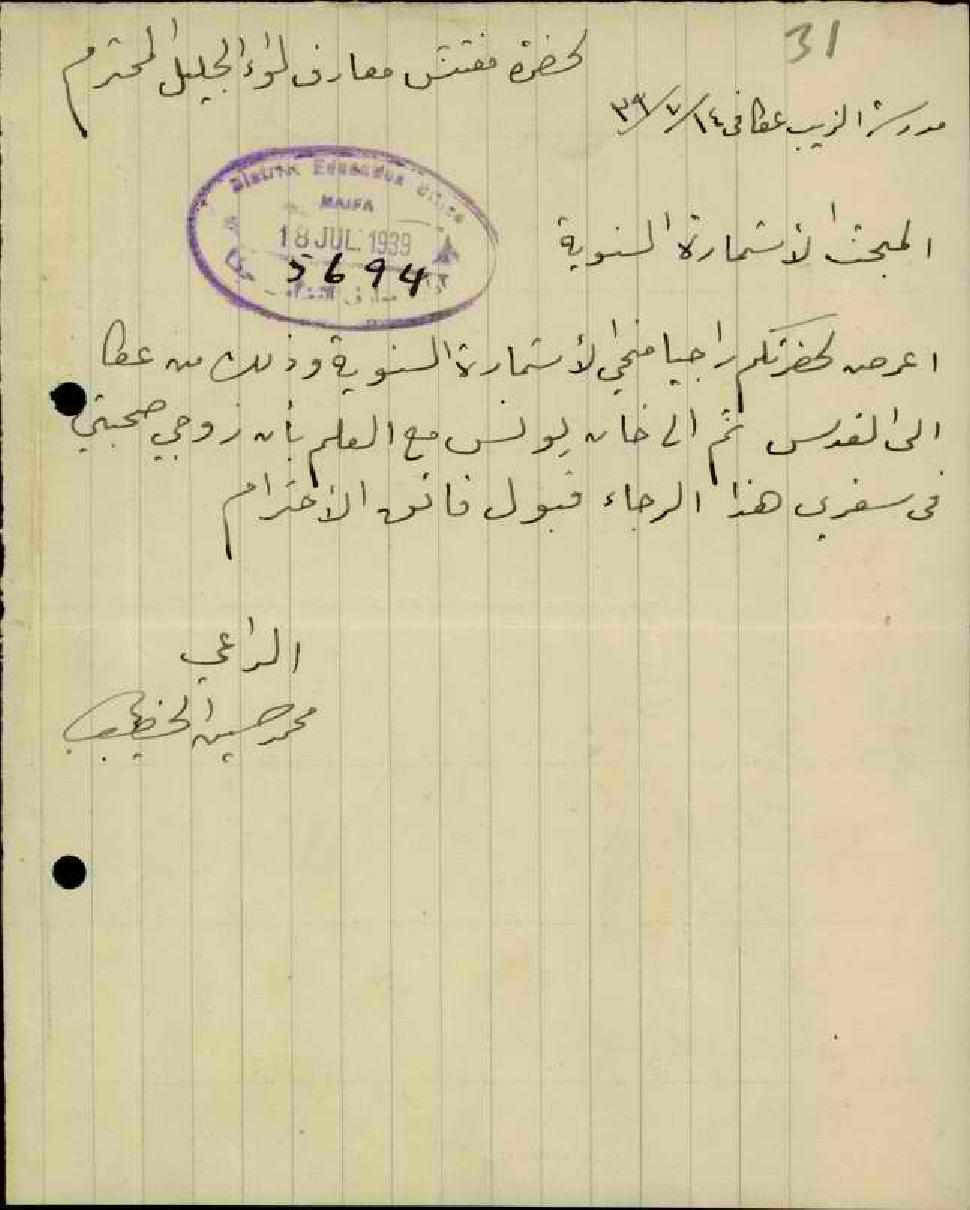 31
لحضرة مفتش معارف لواء الجليل المحترم
مدرسة الزيب عكا في ١٤/٧/٣٩
District Education Office
HAIFA
18 JUL. 1939
5694
المبحث الأستمارة السنوية
اعرض لحضرتكم راجيا منحي الأستمارة السنوية وذلك من عكا
الى القدس ثم الى خان يونس مع العلم بأن زوجي صحبتي
في سفري هذا الرجاء قبول فائق الأحترام
الداعي
محمد حسين الخطيب